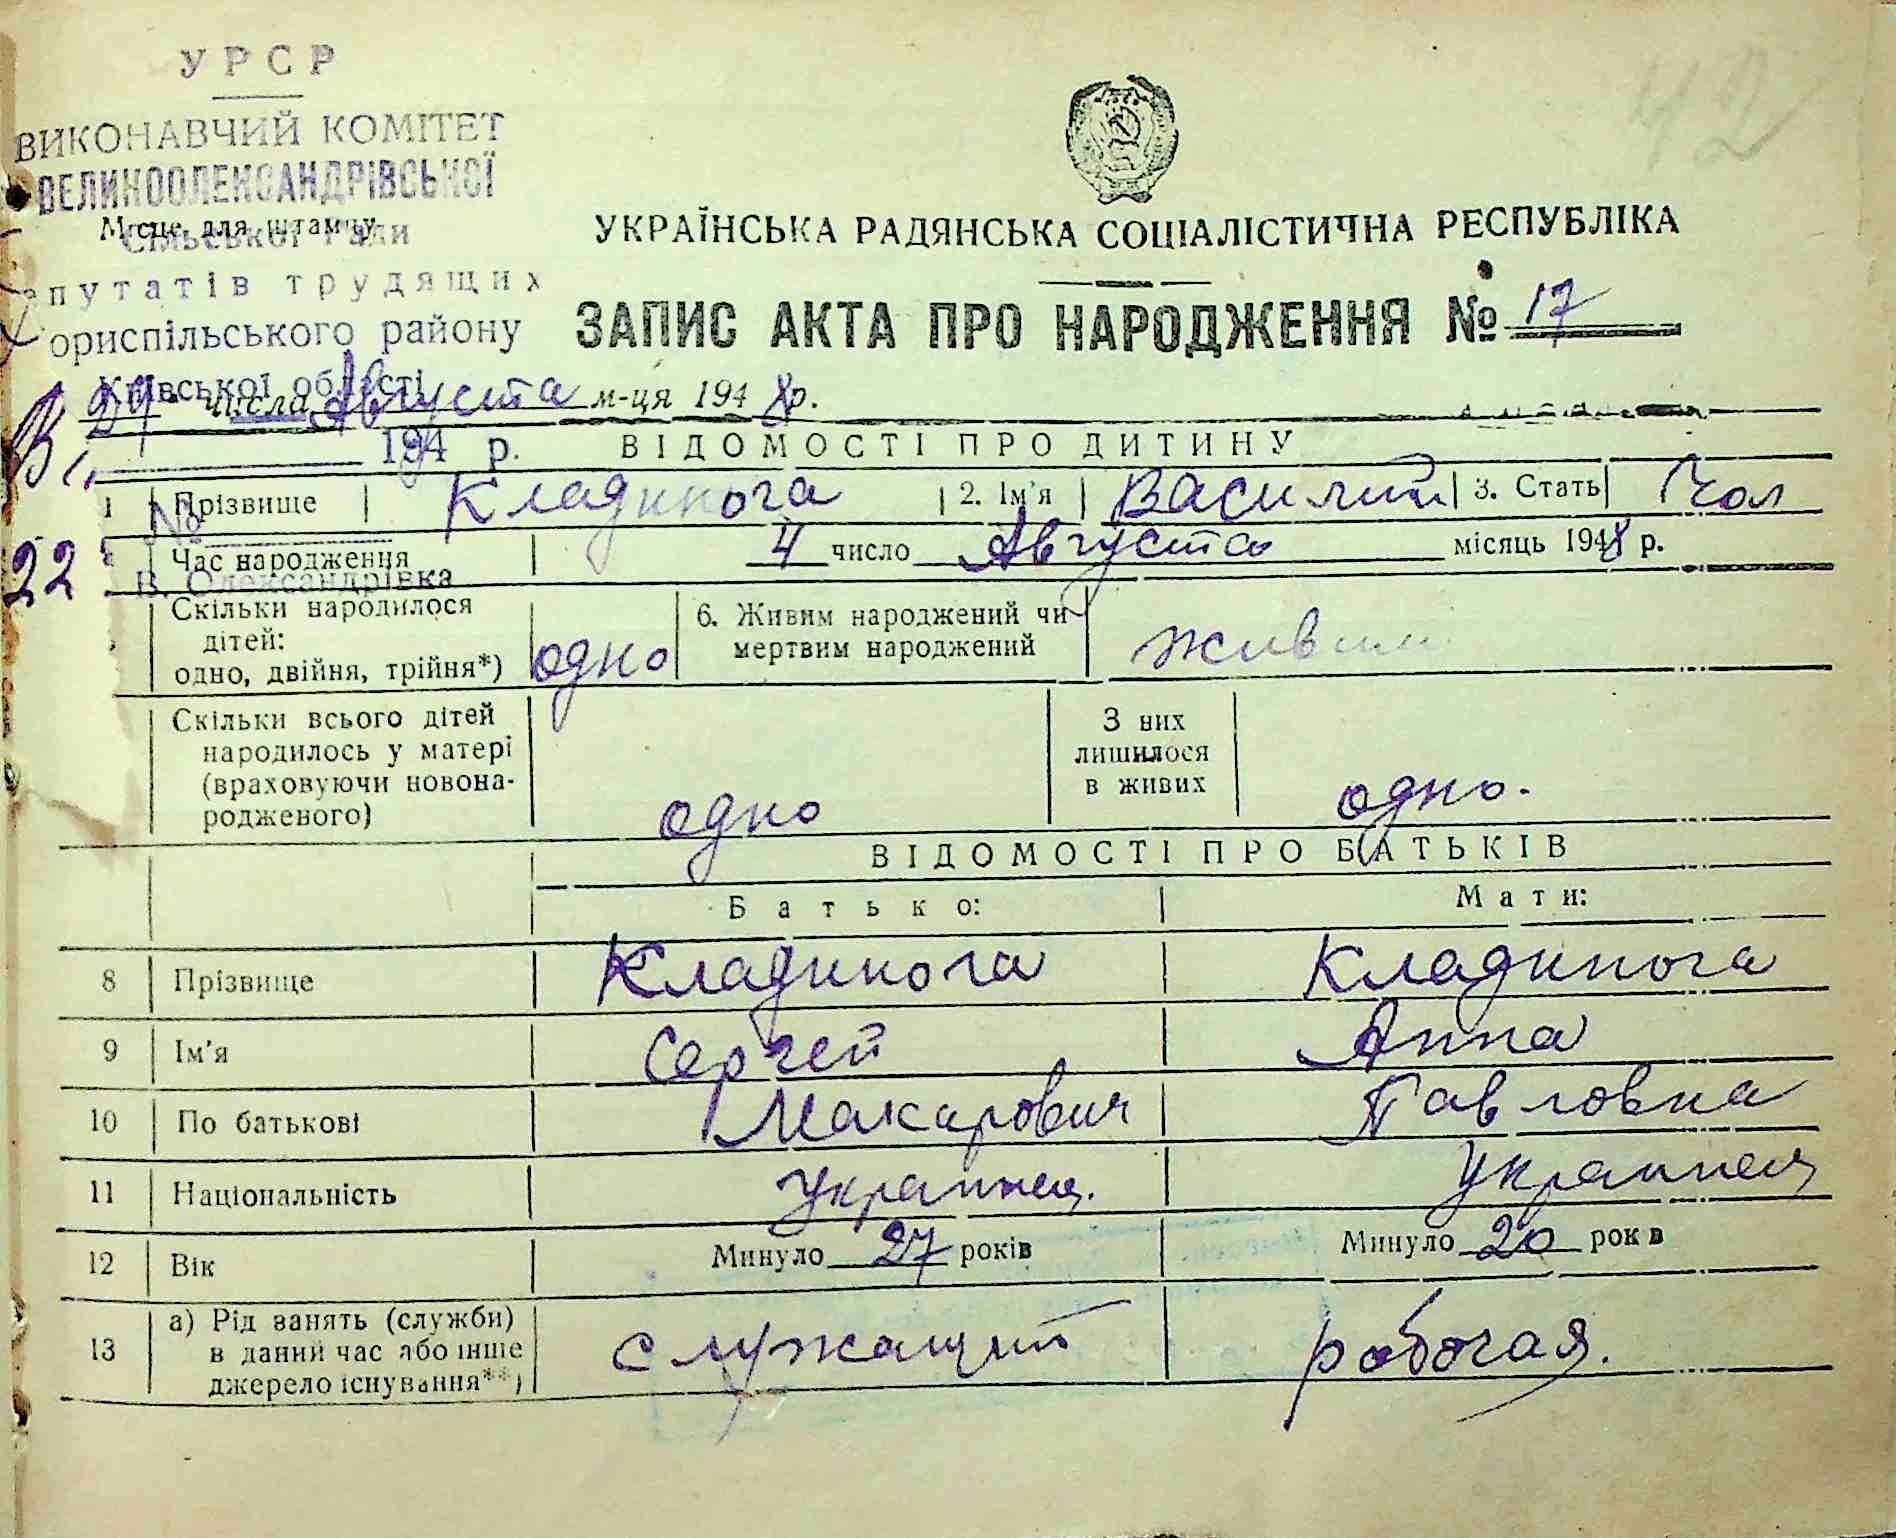 42
УРСР
ВИКОНАВЧИЙ КОМІТЕТ
ВЕЛИКООЛЕКСАНДРІВСЬКОЇ
Місце для штампу
Сільської Ради
путатів трудящих
ориспільського району
Київської області
УКРАЇНСЬКА РАДЯНСЬКА СОЦІАЛІСТИЧНА РЕСПУБЛІКА
ЗАПИС АКТА ПРО НАРОДЖЕННЯ № 17
числа Августа м-ця 1948 р.
194 р.
ВІДОМОСТІ ПРО ДИТИНУ
1 Прізвище Кладинога 2. Ім'я Василий 3. Стать Чол
№
Час народження 4 число Августа місяць 1948 р.
22
В. Олександрівка
Скільки народилося
дітей:
одно, двійня, трійня*) одно
6. Живим народжений чи
мертвим народжений живим
Скільки всього дітей
народилось у матері
(враховуючи новона-
родженого) одно
З них
лишилося
в живих одно.
ВІДОМОСТІ ПРО БАТЬКІВ
Батько: Мати:
8 Прізвище Кладинога Кладинога
9 Ім'я Сергей Анна
10 По батькові Макарович Павловна
11 Національність Украинец. Украинец
12 Вік Минуло 27 років Минуло 20 рок в
13 а) Рід занять (служби)
в даний час або інше
джерело існування**) служащий рабочая.